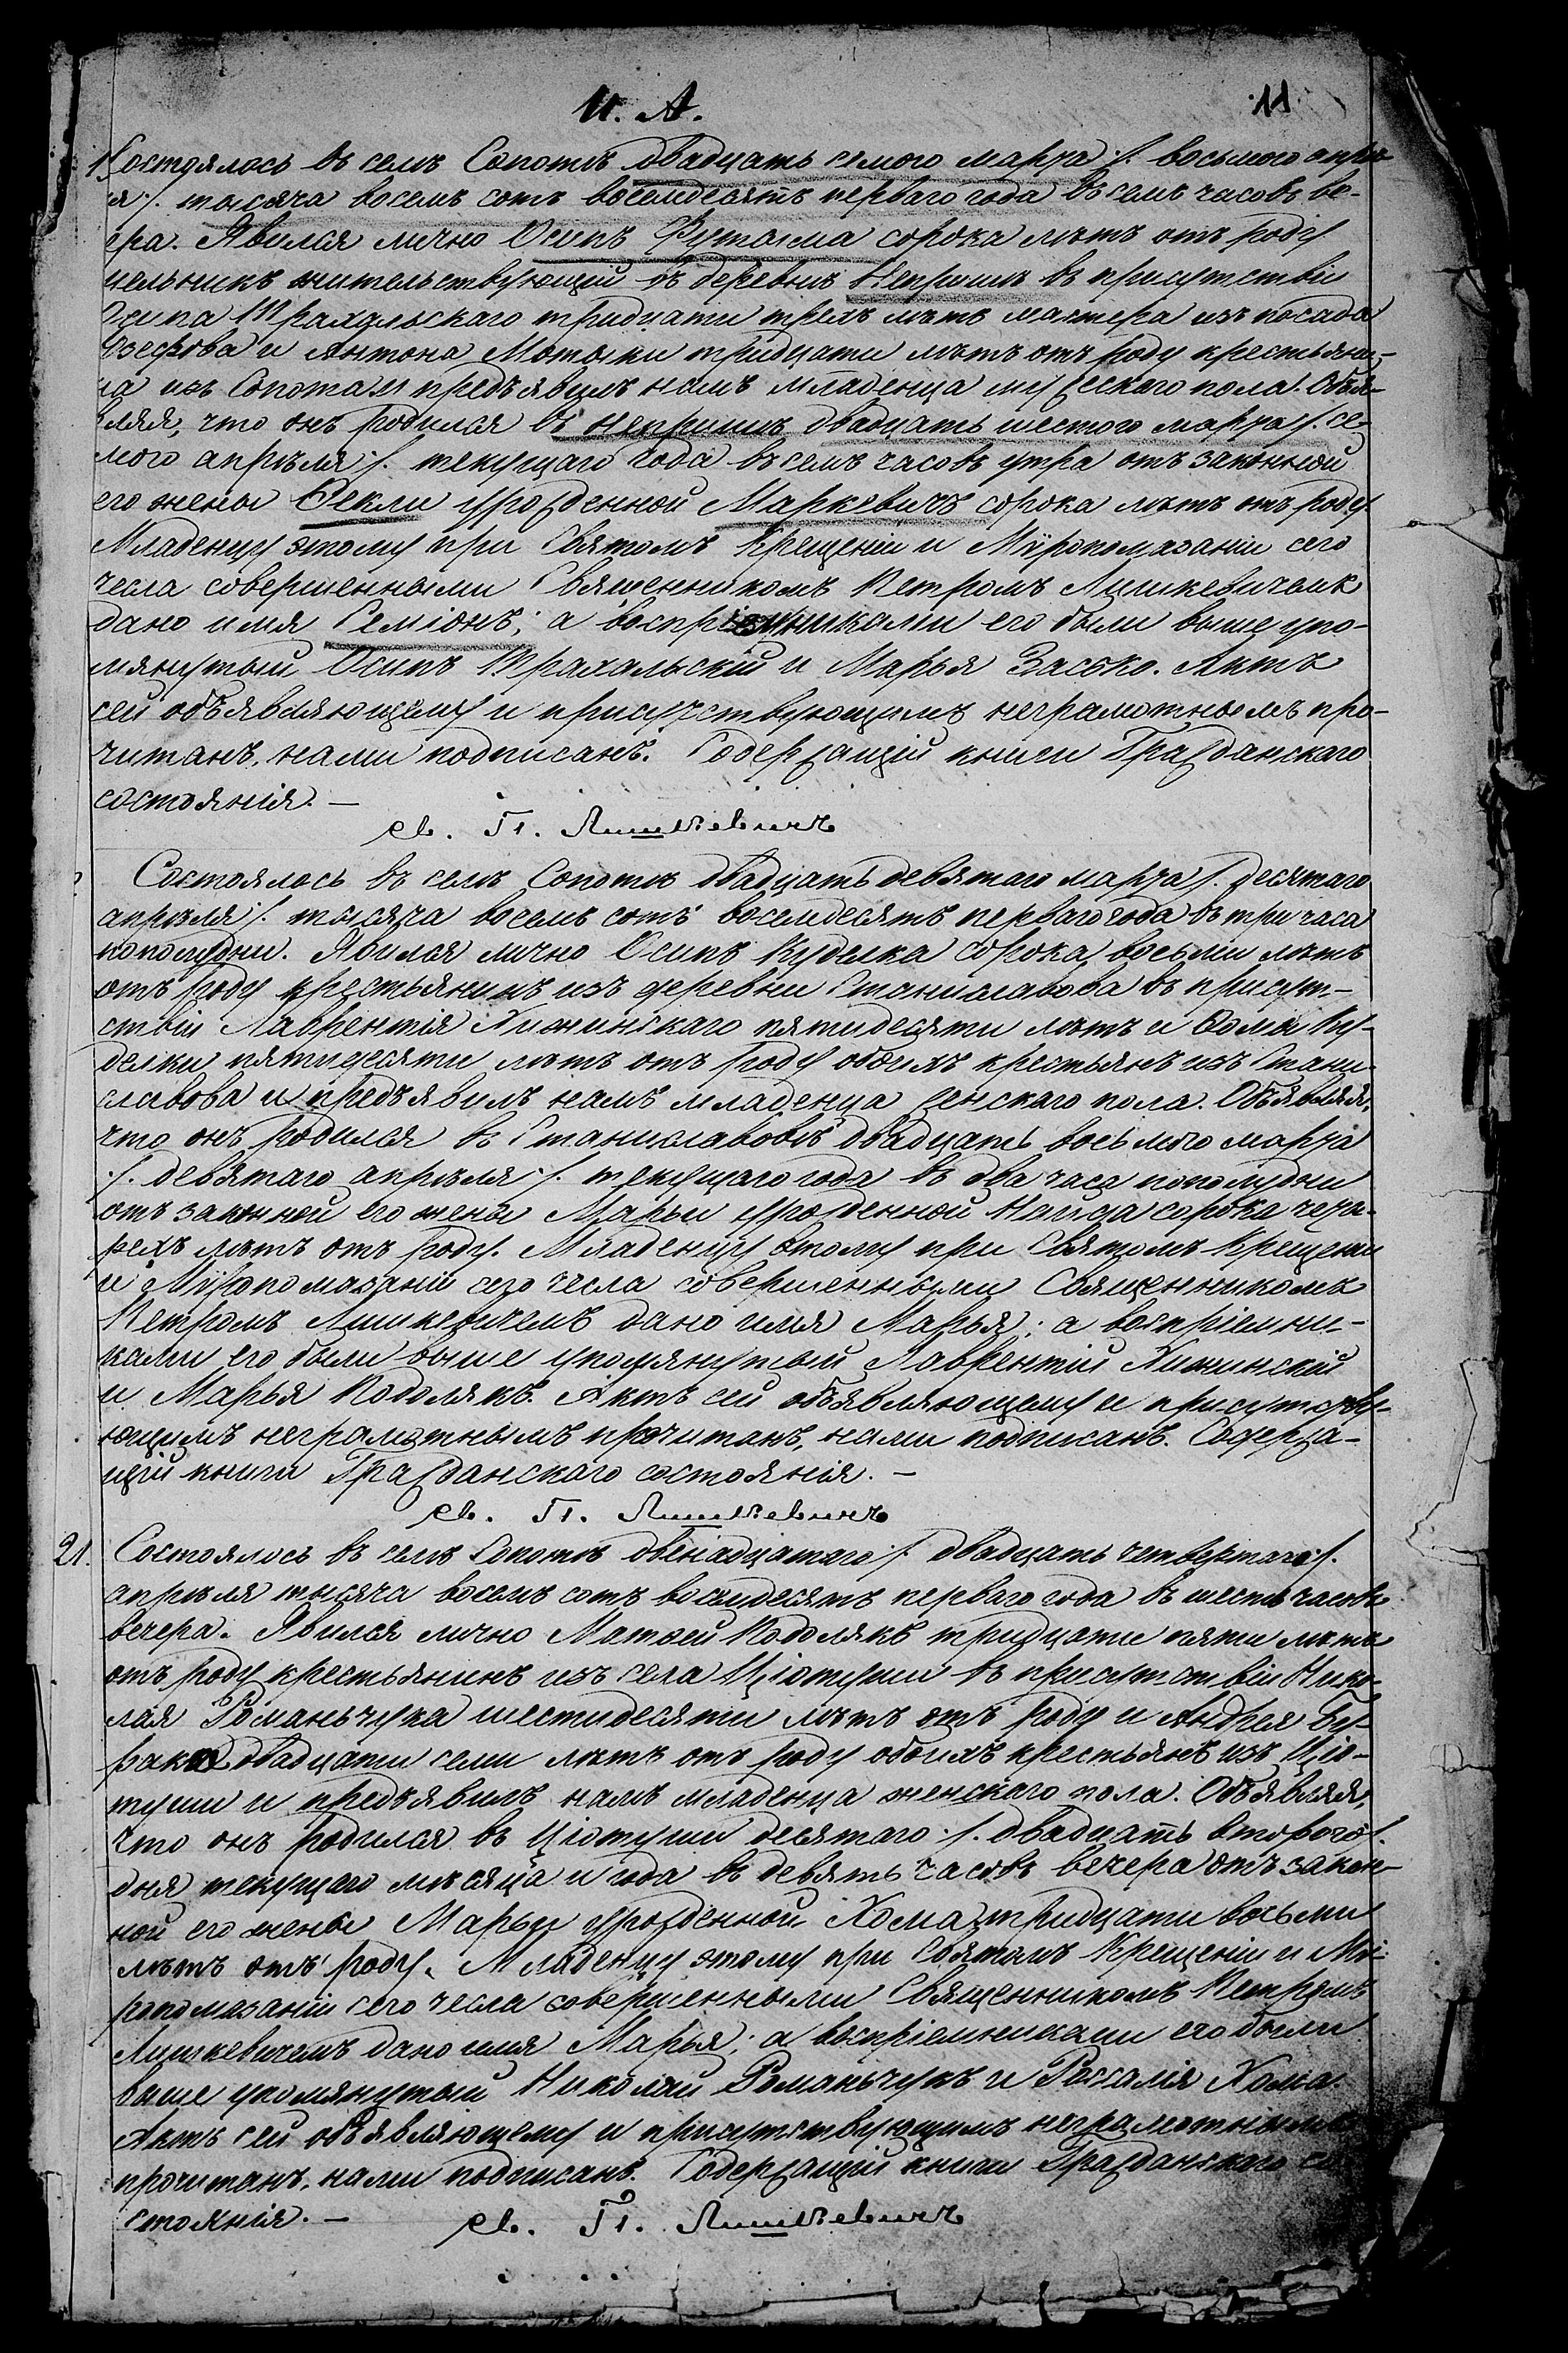 11. А. 11
Состоялось въ селѣ Сопотѣ двадцать седмого марта /. восьмого апрѣ-
ля /. тысяча восемь сотъ восемдесятъ перваго года въ семь часовъ ве-
чера. Явился лично Осипъ сорока лѣтъ отъ роду
мельникъ жительствующій въ деревнѣ Непришѣ въ присутствіи
Осипа Трахальскаго тридцати трехъ лѣтъ мастера изъ посада
Юзефова и Антона Мотыки тридцати лѣтъ отъ роду крестьяни-
на изъ Сопота и предъявилъ намъ младенца мужескаго пола. Объя-
вляя, что онъ родился въ Непришѣ двадцать шестого марта /. се-
мого апрѣля /. текущаго года въ семь часовъ утра отъ законной
его жены Ѳекли урожденной Маркевичъ сорока лѣтъ отъ роду
Младенцу этому при Святомъ Крещеніи и Мѵропомазаніи сего
числа совершенными Священникомъ Петромъ Лишкевичемъ
дано имя Семіонъ; а воспріемниками его были выше упо-
мянутый Осипъ Трахальскій и Марья Засько. Актъ
сей объявляющему и присутствующимъ неграмотнымъ про-
читанъ, нами подписанъ. Содержащій книги Гражданскаго
состоянія. —
св. П. Лишкевичъ
Состоялось въ селѣ Сопотѣ двадцать девятаго марта /. десятаго
апрѣля /. тысяча восемь сотъ восемдесятъ перваго года въ три часа
пополудни. Явился лично Осипъ Куделка сорока восьми лѣтъ
отъ роду крестьянинъ изъ деревни Станиславова въ присут-
ствіи Лаврентія Хижинскаго пятидесяти лѣтъ и Ѳомы Ку-
делки пятидесяти лѣтъ отъ роду обоихъ крестьянъ изъ Стани-
славова и предъявилъ намъ младенца женскаго пола. Объявляя,
что онъ родился въ Станиславовѣ двадцать восьмого марта
/. девятаго апрѣля /. текущаго года въ два часа пополудни
отъ законной его жены Марьи урожденной сорока четы-
рехъ лѣтъ отъ роду. Младенцу этому при Святомъ Крещеніи
и Мѵропомазаніи сего числа совершенными Священникомъ
Петромъ Лишкевичемъ дано имя Марья; а воспріемни-
ками его были выше упомянутый Лаврентій Хижинскій
и Марья Подолякъ. Актъ сей объявляющему и присутству-
ющимъ неграмотнымъ прочитанъ, нами подписанъ. Содержа-
щій книги Гражданскаго состоянія. —
св. П. Лишкевичъ
21. Состоялось въ селѣ Сопотѣ двѣнадцатаго /. двадцать четвертаго /.
апрѣля тысяча восемь сотъ восемдесятъ перваго года въ шесть часовъ
вечера. Явился лично Матвей Подолякъ тридцати пяти лѣтъ
отъ роду крестьянинъ изъ села Ціотуши въ присутствіи Нико-
лая Романьчука шестидесяти лѣтъ отъ роду и Андрея Бу-
рака двадцати семи лѣтъ отъ роду обоихъ крестьянъ изъ Ціо-
туши и предъявилъ намъ младенца женскаго пола. Объявляя,
что онъ родился въ Ціотуши десятаго /. двадцать второго /.
дня текущаго мѣсяца и года въ девять часовъ вечера отъ закон-
ной его жены Марьи урожденной Хома тридцати восьми
лѣтъ отъ роду. Младенцу этому при Святомъ Крещеніи и Мѵ-
ропомазаніи сего числа совершенными Священникомъ Петромъ
Лишкевичемъ дано имя Марья; а воспріемниками его были
выше упомянутый Николай Романьчукъ и Розалія Хома.
Актъ сей объявляющему и присутствующимъ неграмотнымъ
прочитанъ, нами подписанъ. Содержащій книги Гражданскаго со-
стоянія. — св. П. Лишкевичъ